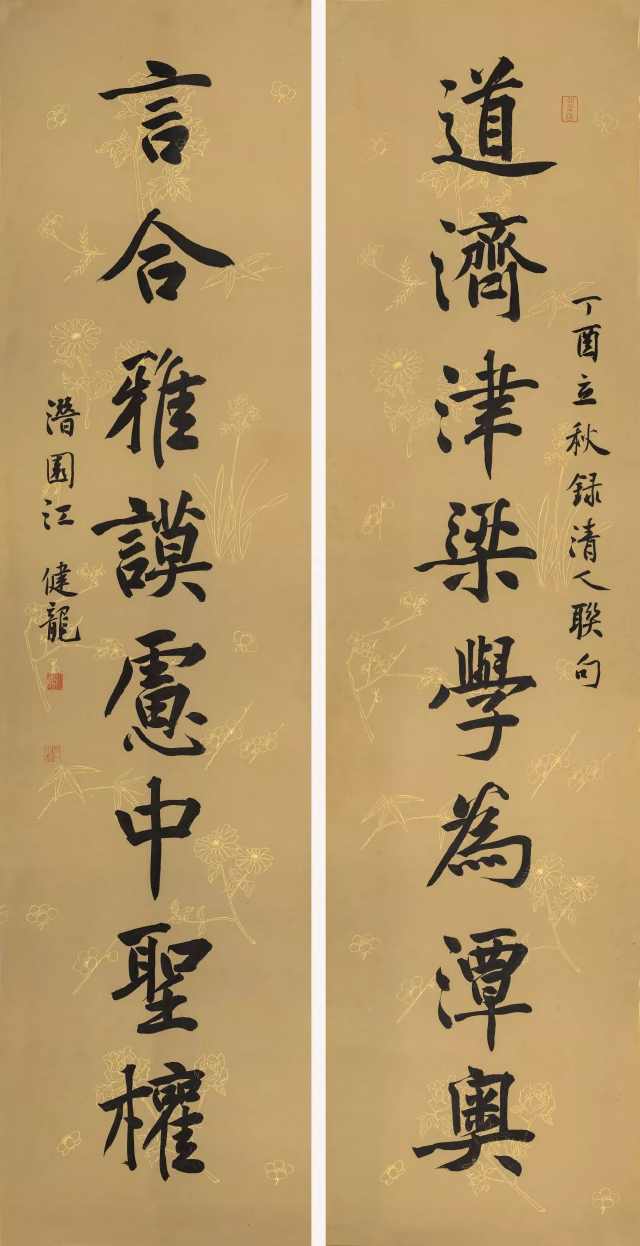 道濟津梁學為潭奧
丁酉立秋録清人聯句
言合雅謨慮中聖權
潛園江健龍